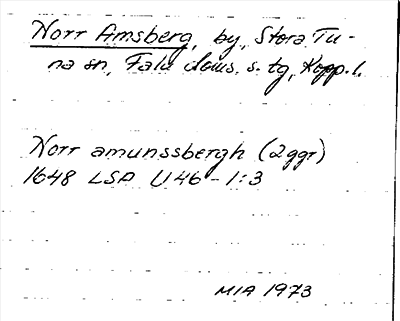 Norr Amsberg, by, Stora Tu-
na sn, Falu doms. s. tg, Kopp. l.
Norr amunssbergh (2ggr)
1648 LSA U46-1:3
MIA 1973